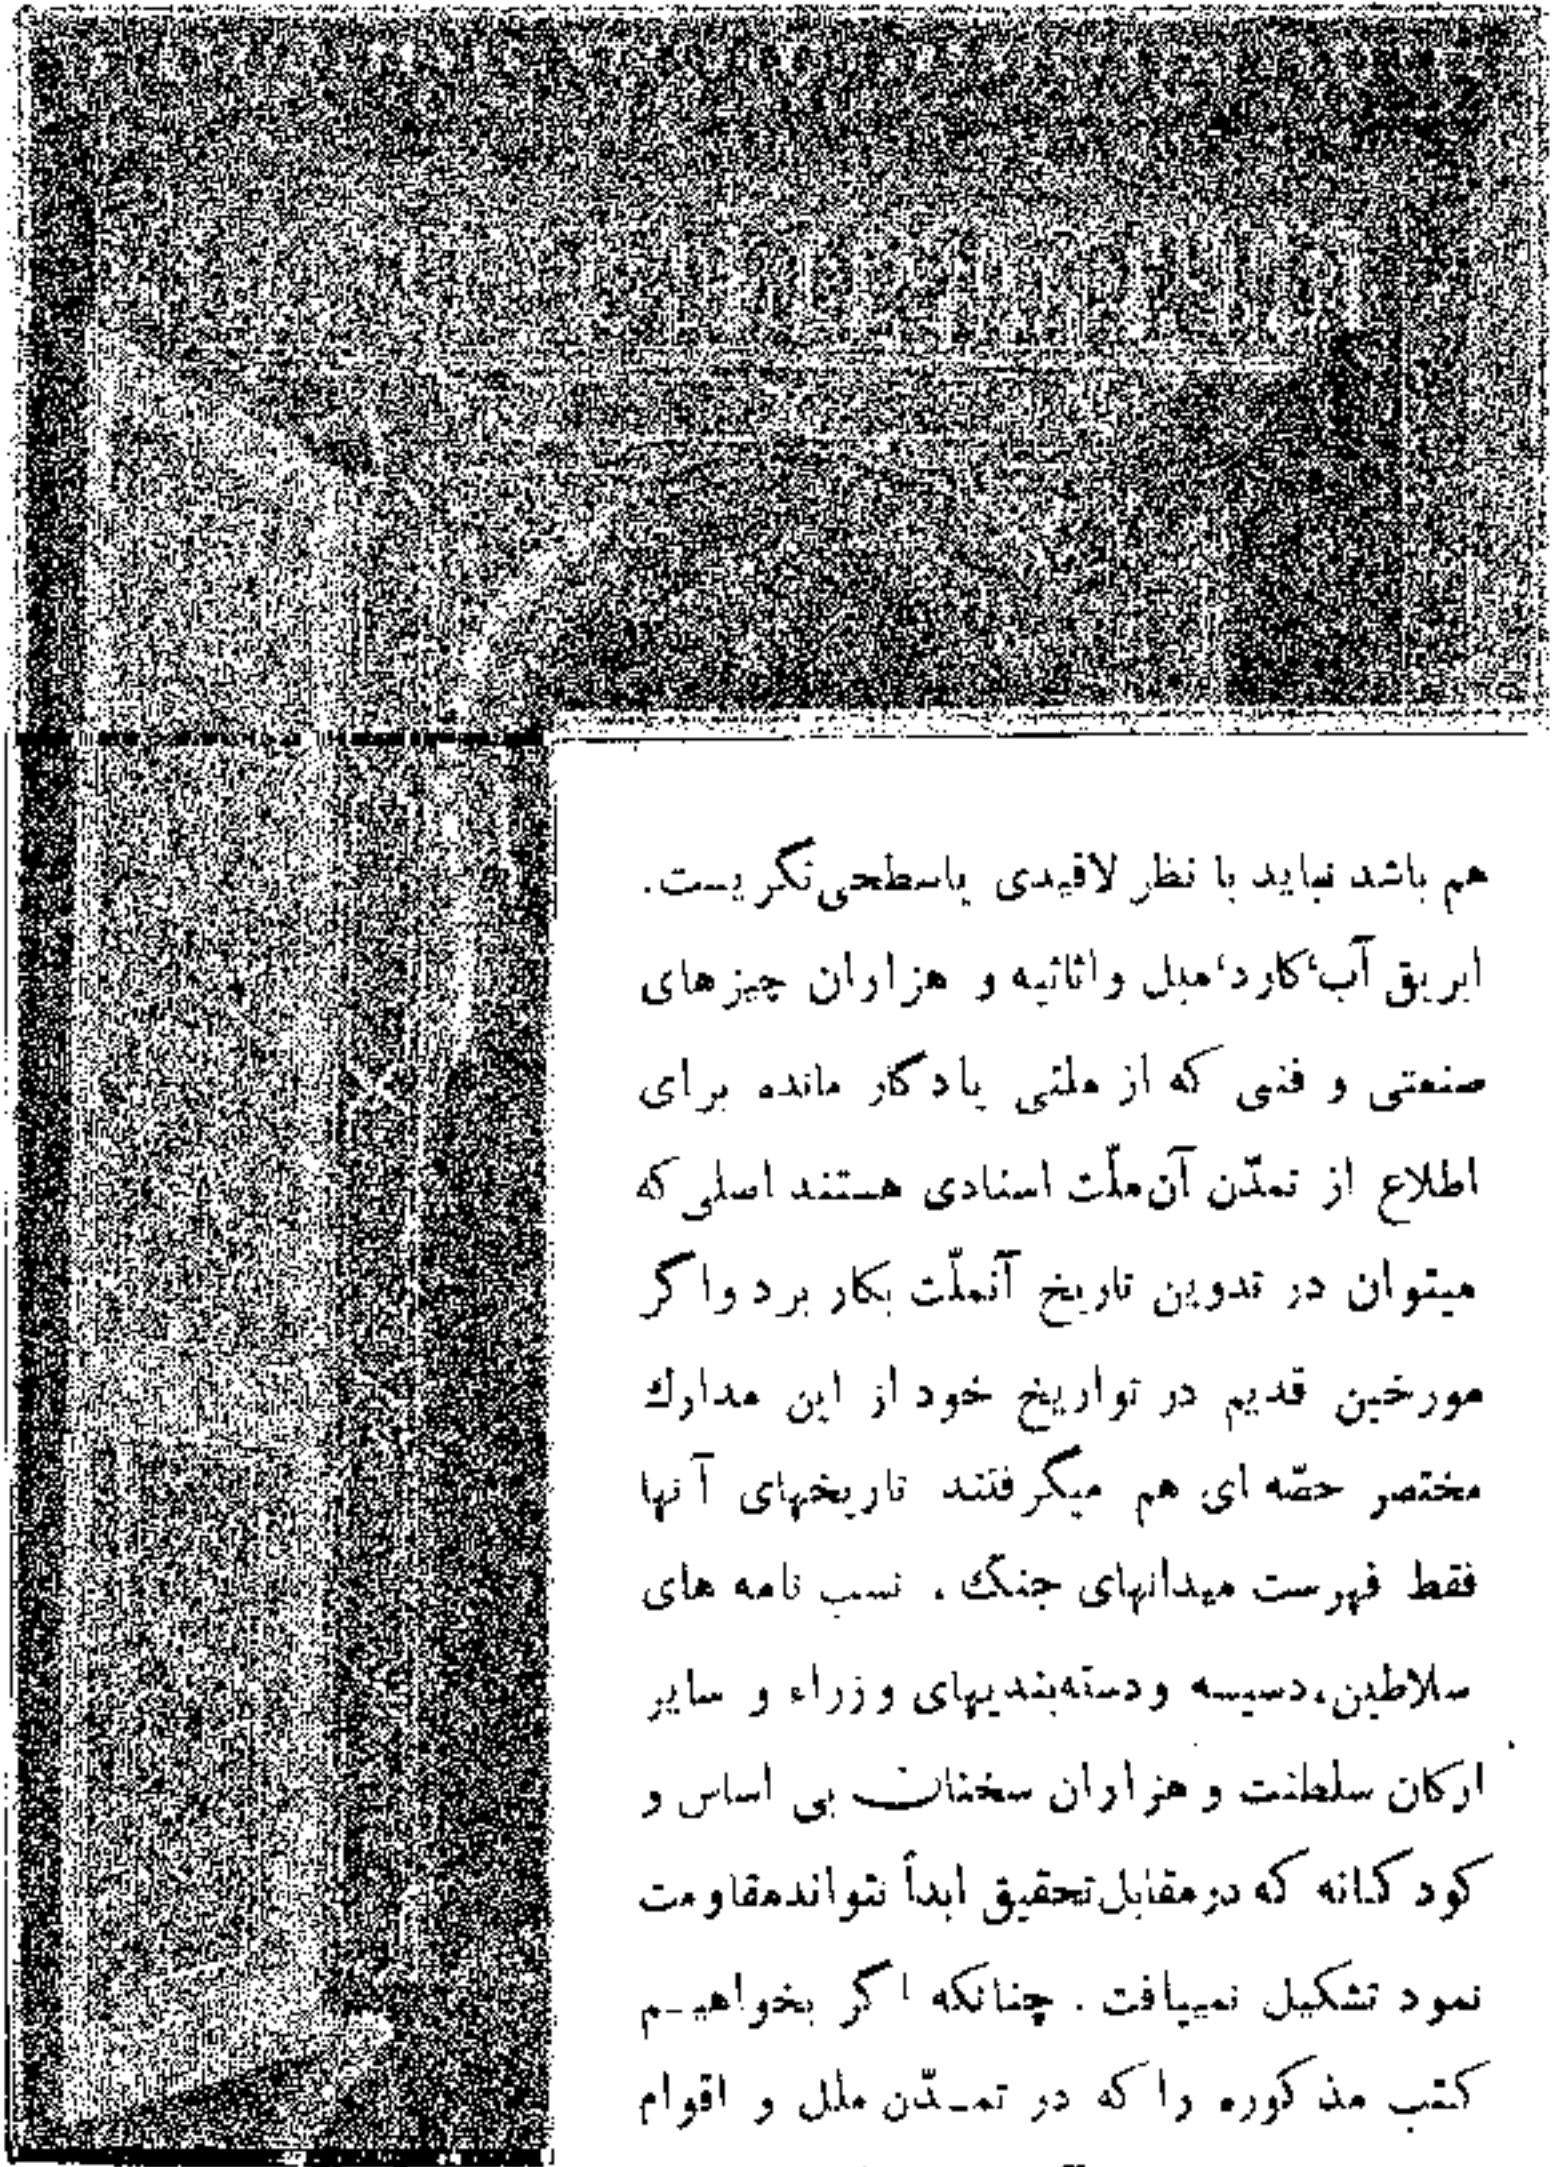 هم باشد نباید با نظر لاقیدی یاسطحی نگریست.
ابریق آب،کارد،مبل واثاثیه و هزاران چیزهای
صنعتی و فنی که از ملتی یادگار مانده برای
اطلاع از تمدّن آن ملّت اسنادی هستند اصلی که
میتوان در تدوین تاریخ آنملّت بکار برد واگر
مورخین قدیم در تواریخ خود از این مدارك
مختصر حصّه ای هم میگرفتند تاریخهای آنها
فقط فهرست میدانهای جنگ، نسب نامه های
سلاطین،دسیسه ودسته‌بندیهای وزراء و سایر
ارکان سلطنت و هزاران سخنان بی اساس و
کودکانه که درمقابل تحقیق ابداً نتواندمقاومت
نمود تشکیل نمییافت. چنانکه اگر بخواهیم
کتب مذکوره را که در تمدّن ملل و اقوام